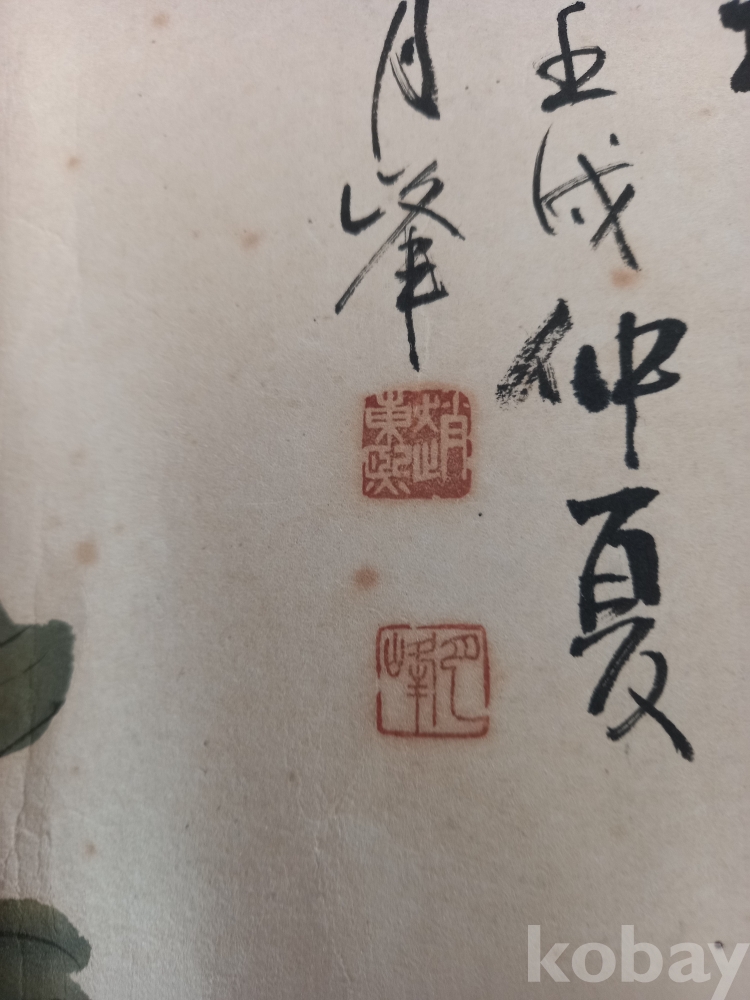 壬戌仲夏
月峯
趙東熙
峰
kobay